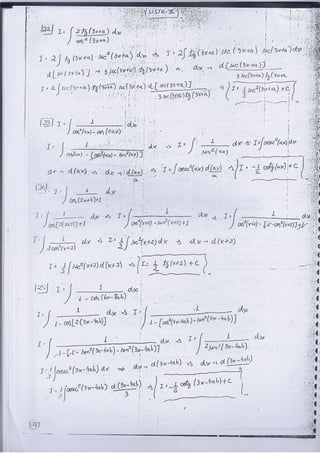 LISTA-II
[22] I = ∫ 2tg(3x+a) / cos²(3x+a) dx
I = 2∫ tg(3x+a) sec²(3x+a) dx ⇒ I = 2∫ tg(3x+a) sec(3x+a) sec(3x+a) dx
d[sec(3x+a)] → 3 sec(3x+a) tg(3x+a) dx → d[sec(3x+a)] / 3 sec(3x+a) tg(3x+a)
I = 2∫ sec(3x+a) tg(3x+a) sec(3x+a) d[sec(3x+a)] / 3 sec(3x+a) tg(3x+a) ⇒ I = 1/3 sec²(3x+a) + C
I = ∫ 1 / cos²(ax) - cos(2ax) dx
I = ∫ 1 / cos²(ax) - [cos²(ax) - sen²(ax)] dx ⇒ I = ∫ 1 / sen²(ax) dx ⇒ I = ∫ cosec²(ax) dx
ax → d(ax) ⇒ dx → d(ax)/a ⇒ I = ∫ cosec²(ax) d(ax)/a ⇒ I = -1/a cotg(ax) + C
I = ∫ 1 / cos(2x+4)+1 dx
I = ∫ 1 / cos[2(x+2)]+1 dx ⇒ I = ∫ 1 / cos²(x+2) - sen²(x+2)+1 dx ⇒ I = ∫ 1 / cos²(x+2) - [1 - cos²(x+2)]+1 dx
I = ∫ 1 / 2cos²(x+2) dx ⇒ I = 1/2 ∫ sec²(x+2) dx ⇒ dx → d(x+2)
I = 1/2 ∫ sec²(x+2) d(x+2) ⇒ I = 1/2 tg(x+2) + C
I = ∫ 1 / 1 - cos(6x-8ab) dx
I = ∫ 1 / 1 - cos[2(3x-4ab)] dx ⇒ I = ∫ 1 / 1 - [cos²(3x-4ab) - sen²(3x-4ab)] dx
I = ∫ 1 / 1 - [1 - sen²(3x-4ab) - sen²(3x-4ab)] dx ⇒ I = ∫ 1 / 2sen²(3x-4ab) dx
I = 1/2 ∫ cosec²(3x-4ab) dx ⇒ dx → d(3x-4ab) ⇒ dx → d(3x-4ab)/3
I = 1/2 ∫ cosec²(3x-4ab) d(3x-4ab)/3 ⇒ I = -1/6 cotg(3x-4ab) + C